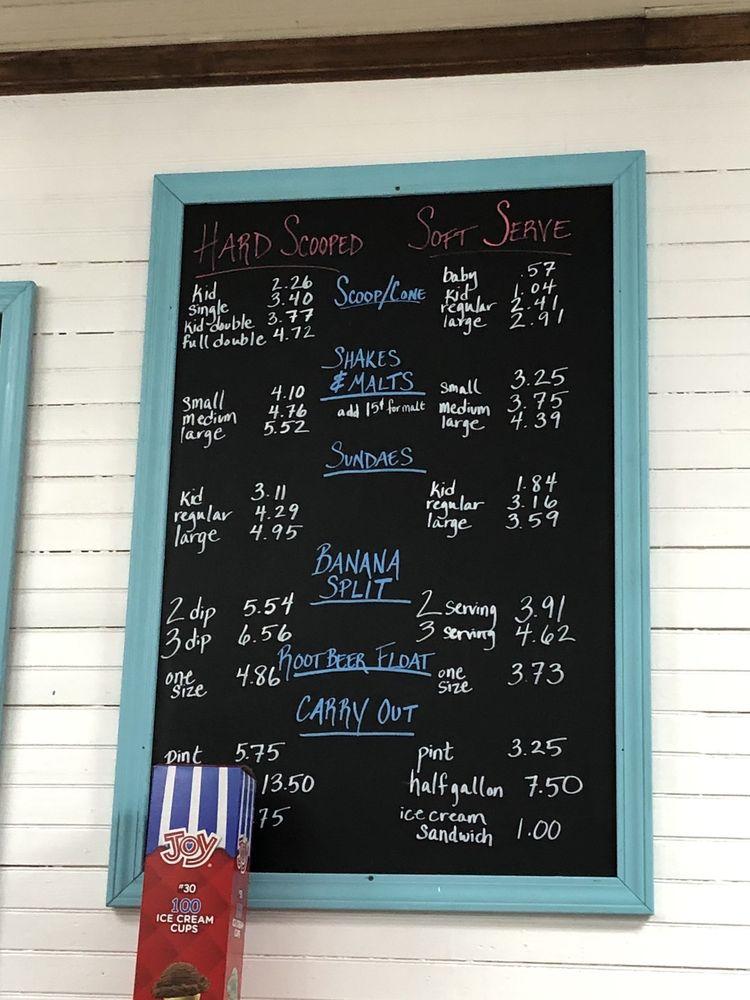 HARD SCOOPED
SOFT SERVE
SCOOP/CONE
kid 2.26
single 3.40
kid-double 3.77
full double 4.72
baby .57
kid 1.04
regular 2.41
large 2.91
SHAKES
& MALTS
add 15¢ for malt
small 4.10
medium 4.76
large 5.52
small 3.25
medium 3.75
large 4.39
SUNDAES
kid 3.11
regular 4.29
large 4.95
kid 1.84
regular 3.16
large 3.59
BANANA
SPLIT
2 dip 5.54
3 dip 6.56
2 serving 3.91
3 serving 4.62
ROOT BEER FLOAT
one
size 4.86
one
size 3.73
CARRY OUT
pint 5.75
13.50
.75
pint 3.25
half gallon 7.50
ice cream
sandwich 1.00
JOY
#30
100
ICE CREAM
CUPS